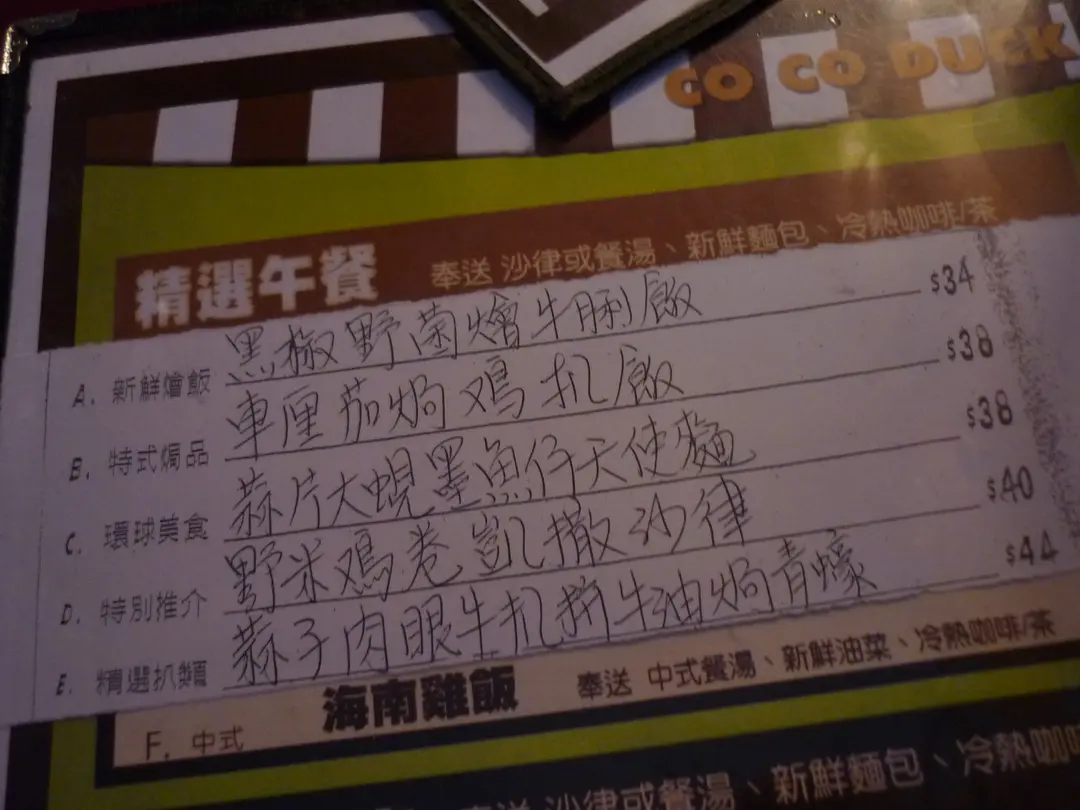 CO CO DUCK
精選午餐 奉送 沙律或餐湯、新鮮麵包、冷熱咖啡/茶
A. 新鮮燴飯 黑椒野菌燴牛脷飯 $34
B. 特式焗品 車厘茄焗鸡扒飯 $38
C. 環球美食 蒜片大蜆墨魚仔天使麵 $38
D. 特別推介 野米鸡卷凱撒沙律 $40
E. 精選扒類 蒜子肉眼牛扒拼牛油焗青蠔 $44
F. 中式 海南雞飯 奉送 中式餐湯、新鮮油菜、冷熱咖啡/茶
奉送 沙律或餐湯、新鮮麵包、冷熱咖啡